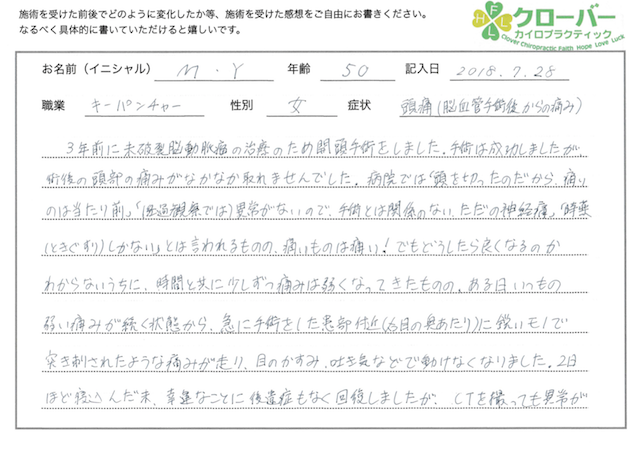 施術を受けた前後でどのように変化したか等、施術を受けた感想をご自由にお書きください。
なるべく具体的に書いていただけると嬉しいです。
クローバー
カイロプラクティック
Clover Chiropractic Faith Hope Love Luck
お名前（イニシャル） M・Y 年齢 50 記入日 2018.7.28
職業 キーパンチャー 性別 女 症状 頭痛(脳血管手術後からの痛み)
3年前に未破裂脳動脈瘤の治療のため開頭手術をしました。手術は成功しましたが、
術後の頭部の痛みがなかなか取れませんでした。病院では「頭を切ったのだから、痛い
のは当たり前」「(経過観察では)異常がないので、手術とは関係のない、ただの神経痛」「時薬
(ときぐすり)しかない」とは言われるものの、痛いものは痛い!でもどうしたら良くなるのか
わからないうちに、時間と共に少しずつ痛みは弱くなってきたものの、ある日いつもの
弱い痛みが続く状態から、急に手術をした患部付近(右目の奥あたり)に鋭いモノで
突き刺されたような痛みが走り、目のかすみ、吐き気などで動けなくなりました。2日
ほど寝込んだ末、幸運なことに後遺症もなく回復しましたが、CTを撮っても異常が